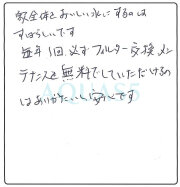 家全体をおいしい水にするのは
すばらしいです
毎年1回必ずフィルター交換メン
テナンスを無料でしていただけるの
はありがたいし安心です
AQUASS